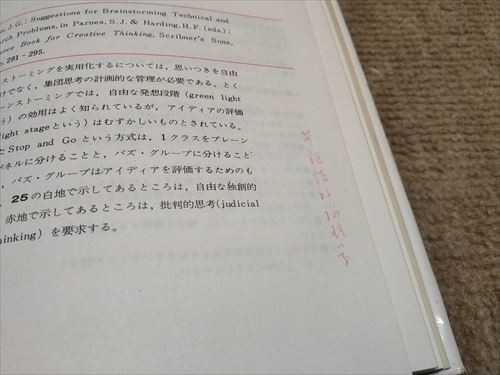 J.G.: Suggestions for Brainstorming Technical and
rch Problems, in Parnes, S.J. & Harding, H.F. (eds.):
rce Book for Creative Thinking, Scribner's Sons,
. 291-295.
ストーミングを実用化するについては，思いつきを自由
けでなく，集団思考の計画的な管理が必要である。とく
ーンストーミングでは，自由な発想段階 (green light
う) の効用はよく知られているが，アイディアの評価
light stageという) はむずかしいものとされている。
た Stop and Go という方式は，1クラスをブレーン
パネルに分けることと，バズ・グループに分けること
，バズ・グループはアイディアを評価するためのも
25 の白地で示してあるところは，自由な独創的
赤地で示してあるところは，批判的思考(judicial
hinking) を要求する。